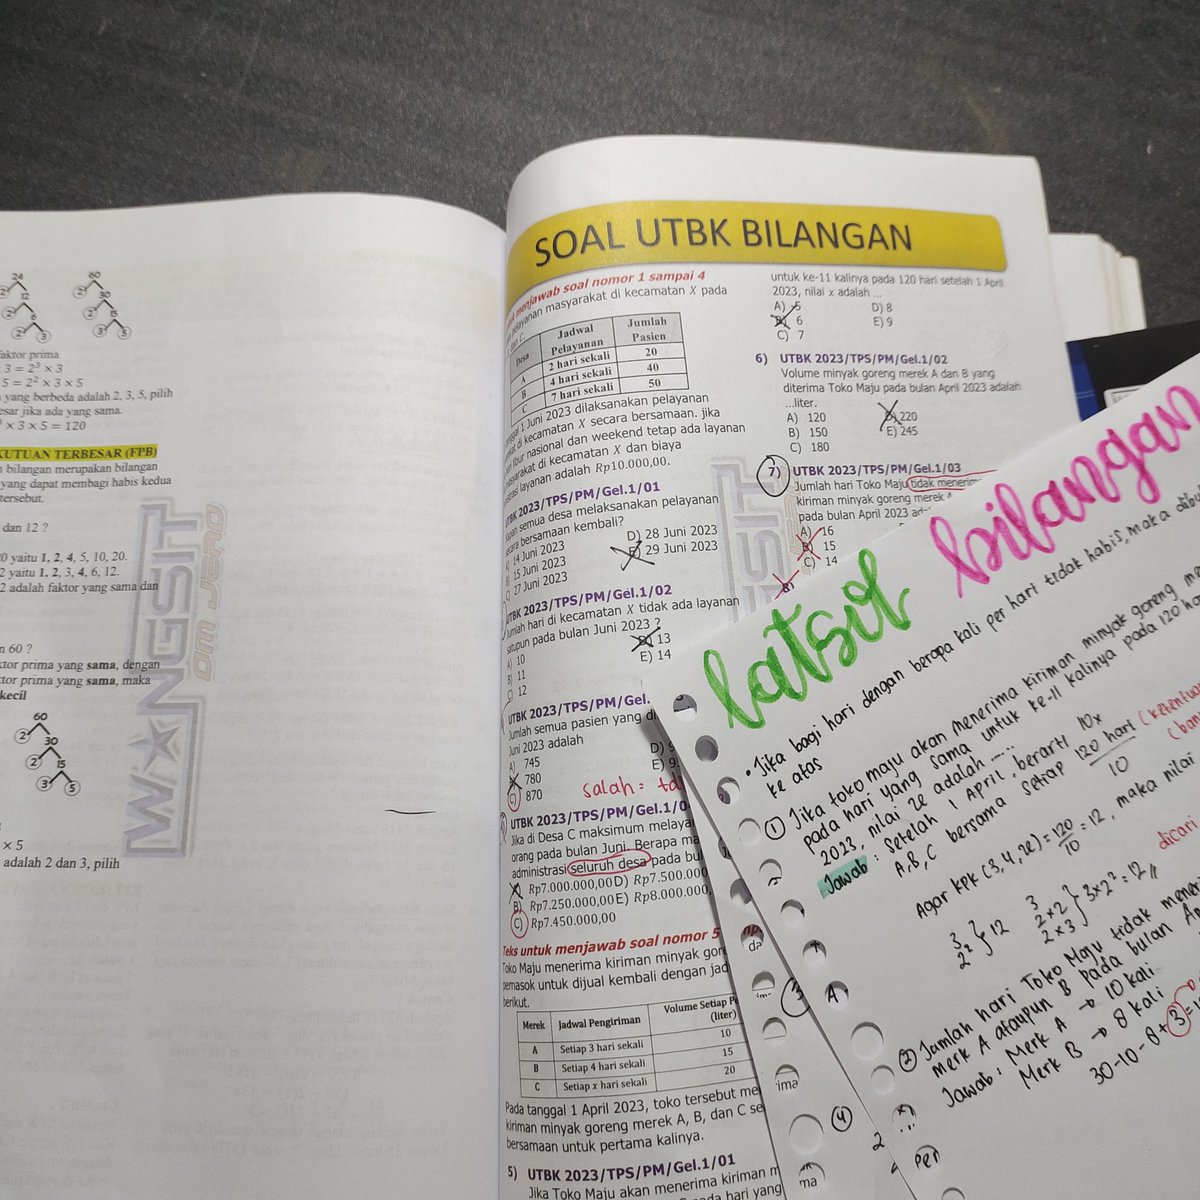 24
60
2
12
2
30
2
6
2
15
2
3
3
5
faktor prima
3 = 2³ × 3
5 = 2² × 3 × 5
yang berbeda adalah 2, 3, 5, pilih
esar jika ada yang sama.
× 3 × 5 = 120
KUTUAN TERBESAR (FPB)
bilangan merupakan bilangan
yang dapat membagi habis kedua
tersebut.
dan 12 ?
0 yaitu 1, 2, 4, 5, 10, 20.
2 yaitu 1, 2, 3, 4, 6, 12.
2 adalah faktor yang sama dan
n 60 ?
ktor prima yang sama, dengan
ktor prima yang sama, maka
kecil
60
2
30
2
15
3
5
× 5
adalah 2 dan 3, pilih
WANGSIT
OM JERO
SOAL UTBK BILANGAN
menjawab soal nomor 1 sampai 4
pelayanan masyarakat di kecamatan X pada
Desa Jadwal Pelayanan Jumlah Pasien
A 2 hari sekali 20
B 4 hari sekali 40
C 7 hari sekali 50
1 Juni 2023 dilaksanakan pelayanan
di kecamatan X secara bersamaan. jika
libur nasional dan weekend tetap ada layanan
masyarakat di kecamatan X dan biaya
layanan adalah Rp10.000,00.
UTBK 2023/TPS/PM/Gel.1/01
semua desa melaksanakan pelayanan
bersamaan kembali?
A) 14 Juni 2023
B) 15 Juni 2023
C) 27 Juni 2023
D) 28 Juni 2023
E) 29 Juni 2023
UTBK 2023/TPS/PM/Gel.1/02
Jumlah hari di kecamatan X tidak ada layanan
satupun pada bulan Juni 2023 ?
A) 10
B) 11
C) 12
D) 13
E) 14
UTBK 2023/TPS/PM/Gel.
Jumlah semua pasien yang di
Juni 2023 adalah
A) 745
780
C) 870
salah =
UTBK 2023/TPS/PM/Gel.1/0
Jika di Desa C maksimum melaya
orang pada bulan Juni. Berapa
administrasi seluruh desa pada bul
Rp7.000.000,00 D) Rp7.500.000
B) Rp7.250.000,00 E) Rp8.000.000,
C) Rp7.450.000,00
Teks untuk menjawab soal nomor 5
Toko Maju menerima kiriman minyak gore
pemasok untuk dijual kembali dengan jad
berikut.
Merek Jadwal Pengiriman Volume Setiap (liter)
A Setiap 3 hari sekali 10
B Setiap 4 hari sekali 15
C Setiap x hari sekali 20
Pada tanggal 1 April 2023, toko tersebut me
kiriman minyak goreng merek A, B, dan C se
bersamaan untuk pertama kalinya.
5) UTBK 2023/TPS/PM/Gel.1/01
Jika Toko Maju akan menerima kiriman m
pada hari yang
untuk ke-11 kalinya pada 120 hari setelah 1 April
2023, nilai x adalah ...
A) 5
B) 6
C) 7
D) 8
E) 9
6) UTBK 2023/TPS/PM/Gel.1/02
Volume minyak goreng merek A dan B yang
diterima Toko Maju pada bulan April 2023 adalah
...liter.
A) 120
B) 150
C) 180
D) 220
E) 245
7) UTBK 2023/TPS/PM/Gel.1/03
Jumlah hari Toko Maju tidak menerim
kiriman minyak goreng merek A
pada bulan April 2023
A) 16
B) 15
C) 14
WANGSIT
latsol bilangan
• Jika bagi hari dengan berapa kali per hari tidak habis, maka dibul
ke atas
① Jika toko maju akan menerima kiriman minyak goreng me
pada hari yang sama untuk ke-11 kalinya pada 120 har
2023, nilai x adalah ....
Jawab : Setelah 1 April, berarti 10x
A, B, C bersama setiap 120 hari / 10
Agar KPK (3, 4, x) = 120/10 = 12, maka nilai
dicari
3
2² } 12
3
2 × 2
2 × 3 } 3 × 2² = 12
② Jumlah hari Toko Maju tidak meneri
merk A ataupun B pada bulan Ap
Jawab : Merk A → 10 kali
Merk B → 8 kali
30 - 10 - 8 + 3 =
3
A
4
2
Per
ima
ma